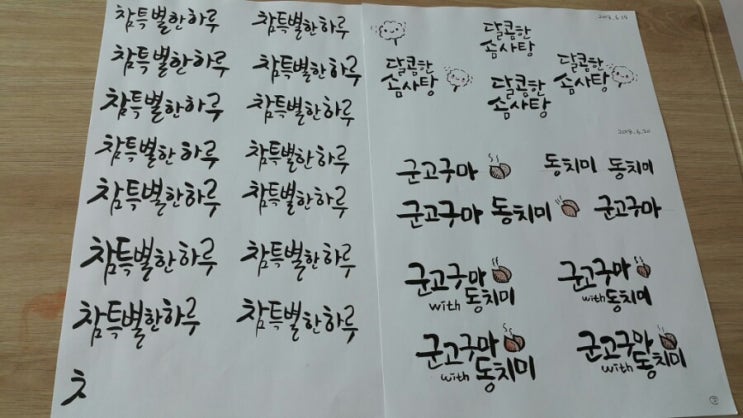 참특별한하루 참특별한하루
참특별한하루 참특별한하루
참특별한하루 참특별한하루
참특별한하루 참특별한하루
참특별한하루 참특별한하루
참특별한하루 참특별한하루
참특별한하루 참특별한하루
ㅊ
달콤한
솜사탕
달콤한
솜사탕
달콤한
솜사탕
달콤한
솜사탕
군고구마 동치미 동치미
군고구마 동치미 군고구마
군고구마
with 동치미
군고구마
with 동치미
군고구마
with 동치미
군고구마
with 동치미